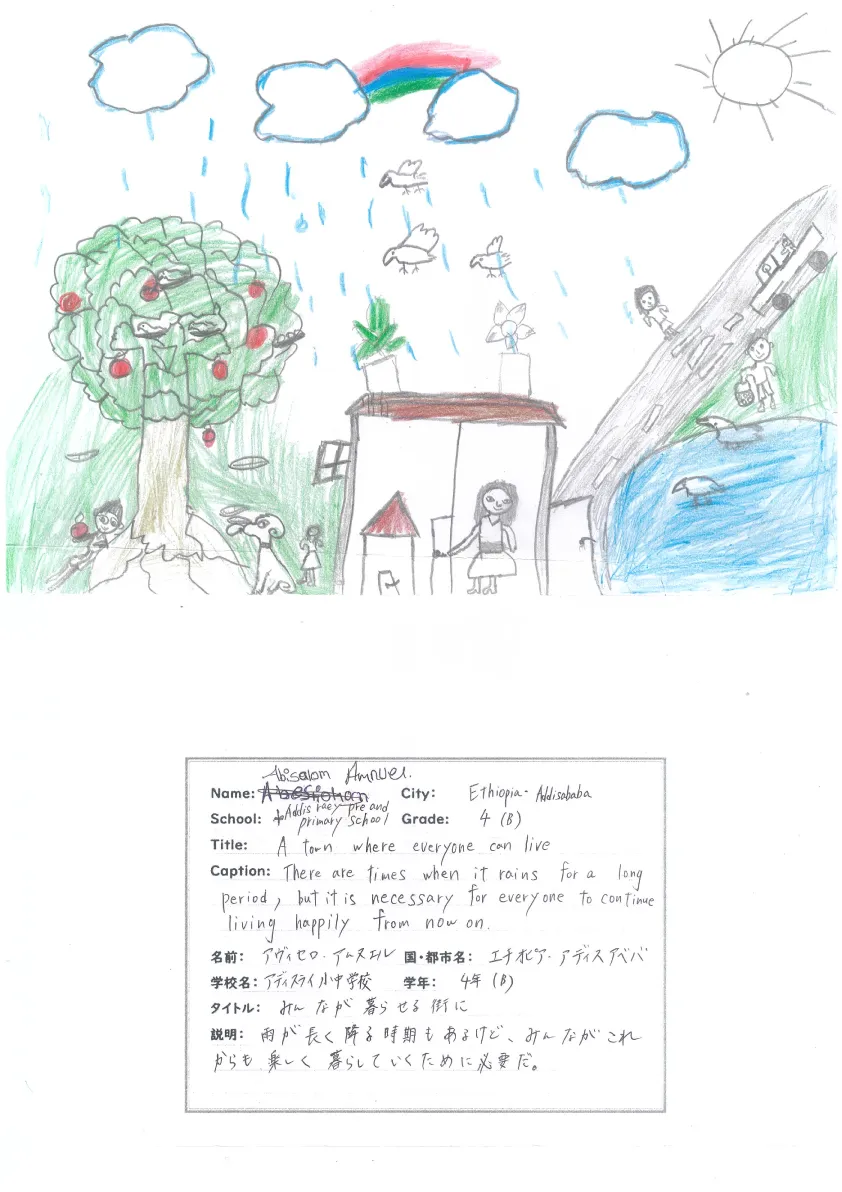 Abisalom Amnuel.
Name: City: Ethiopia - Addisababa
School: Addis raey pre and primary school Grade: 4 (B)
Title: A town where everyone can live
Caption: There are times when it rains for a long
period, but it is necessary for everyone to continue
living happily from now on.
名前: アヴィセロ・アムヌエル 国・都市名: エチオピア・アディスアベバ
学校名: アディスライ小中学校 学年: 4年 (B)
タイトル: みんなが暮らせる街に
説明: 雨が長く降る時期もあるけど、みんながこれ
からも楽しく暮らしていくために必要だ。